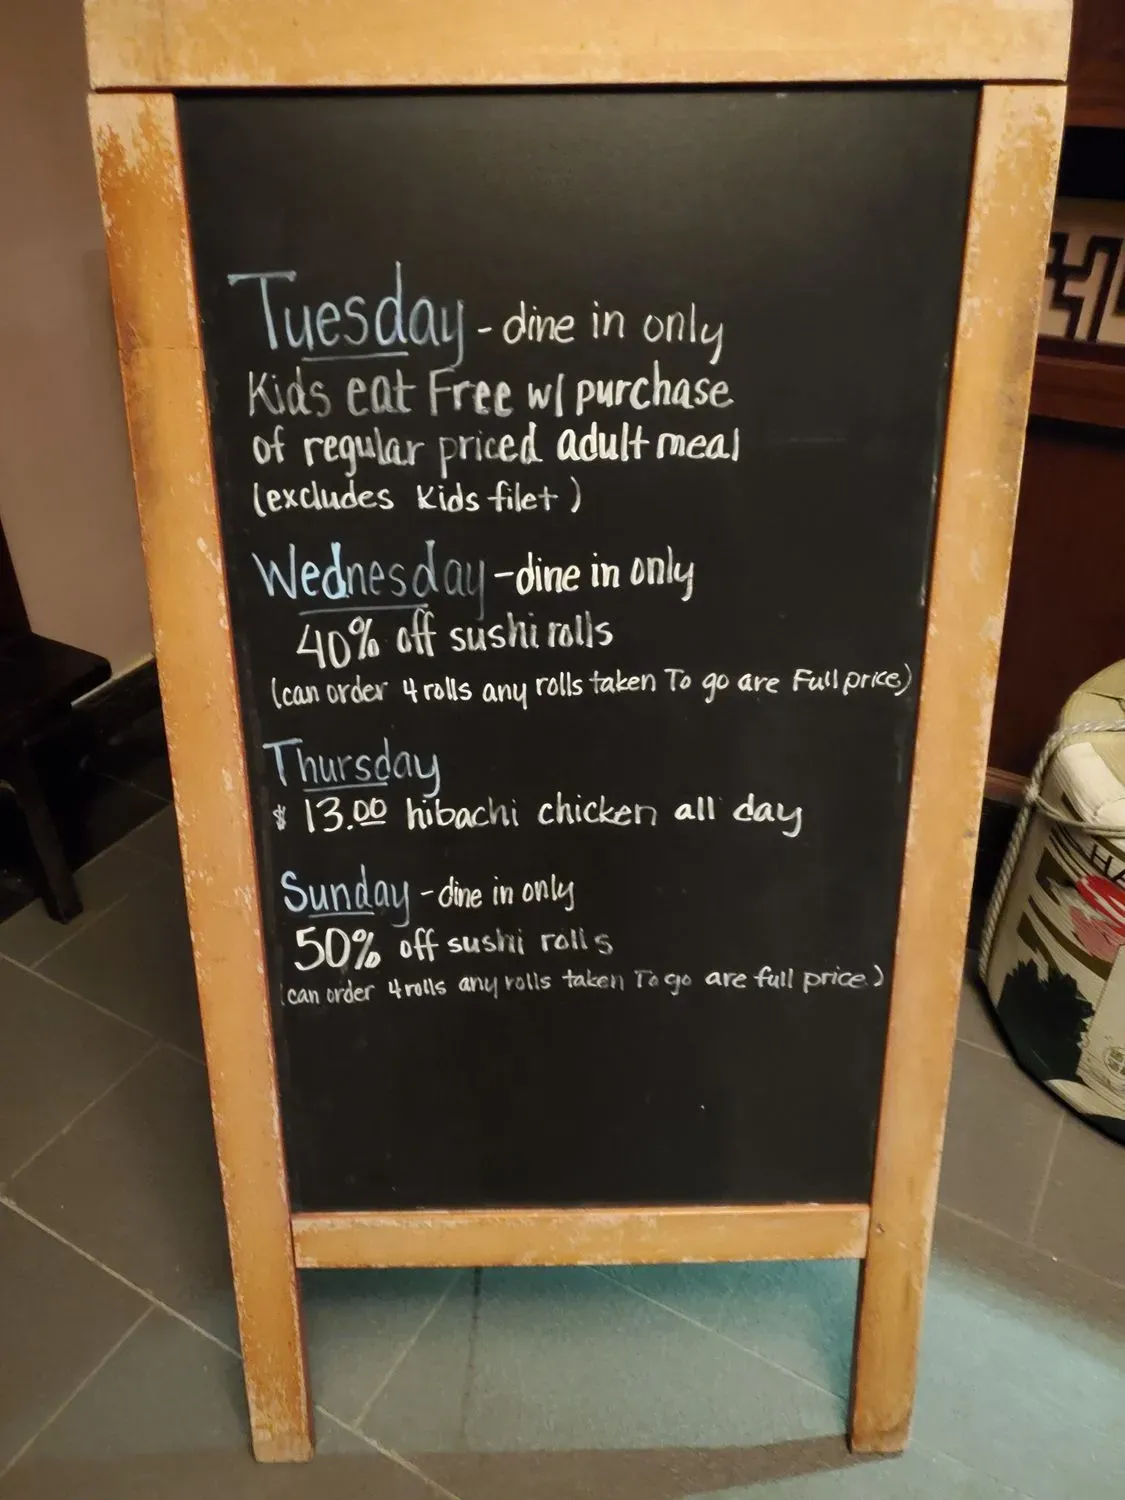 Tuesday - dine in only
Kids eat Free w/ purchase
of regular priced adult meal
(excludes Kids filet)
Wednesday - dine in only
40% off sushi rolls
(can order 4 rolls any rolls taken To go are Full price)
Thursday
$ 13.00 hibachi chicken all day
Sunday - dine in only
50% off sushi rolls
(can order 4 rolls any rolls taken To go are full price)
HA